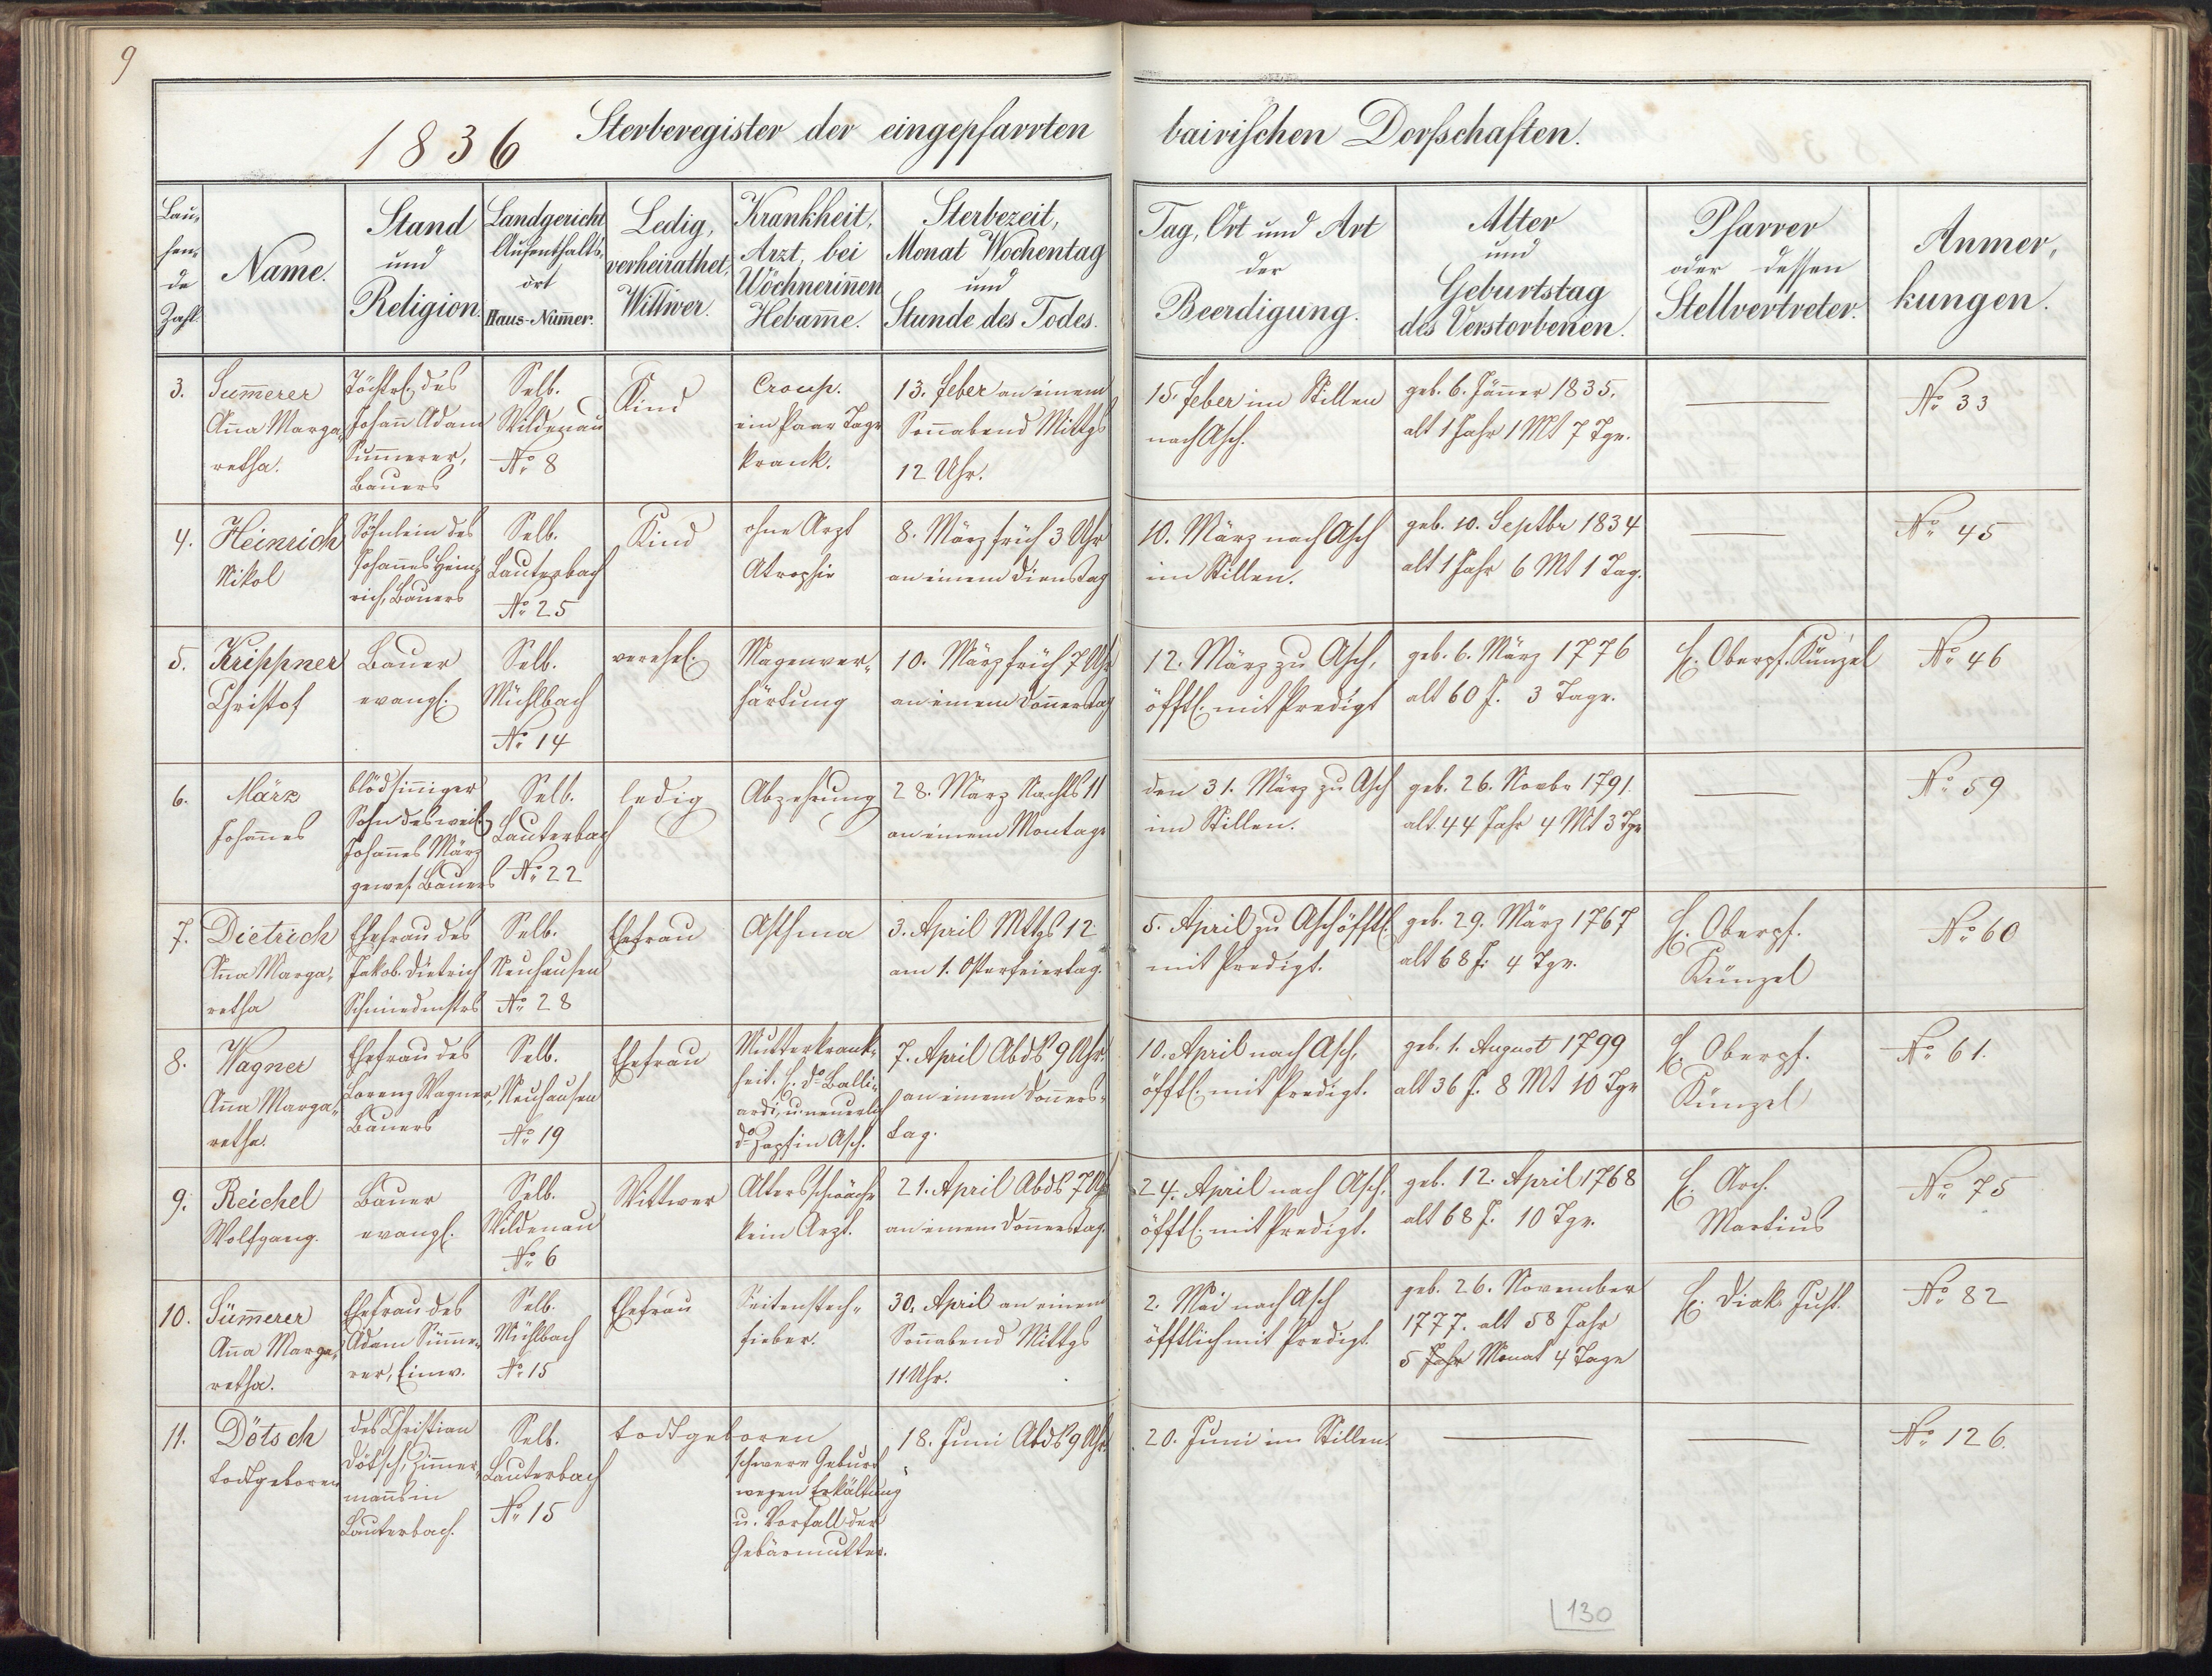 9
1836 Sterberegister der eingepfarrten bairischen Dorfschaften.
Laufende Zahl.
Name.
Stand
und
Religion.
Landgericht
Aufenthalts-
ort
Haus-Num̄er.
Ledig,
verheirathet,
Wittwer.
Krankheit,
Arzt, bei
Wöchnerin̄en
Hebam̄e.
Sterbezeit,
Monat Wochentag
und
Stunde des Todes.
Tag, Ort und Art
der
Beerdigung.
Alter
und
Geburtstag
des Verstorbenen.
Pfarrer
oder dessen
Stellvertreter.
Anmer-
kungen.
3.
Sum̄erer
An̄a Marga-
retha.
Töchtrl. des
Johan̄ Adam
Sum̄erer,
Bauers
Selb.
Wildenau
No 8
Kind
Croup.
ein Paar Tage
krank.
13. Feber an einem
Son̄abend Mittgs
12 Uhr.
15. Feber im Stillen
nach Asch.
geb. 6. Jän̄er 1835.
alt 1 Jahr 1 Mt 7 Tge.
No 33
4.
Heinrich
Nikol
Söhnlein des
Johan̄es Hein-
rich, Bauers
Selb.
Lauterbach
No 25
Kind
ohne Arzt
Atrophie
8. März früh 3 Uhr
an einem Dienstag
10. März nach Asch
im Stillen.
geb. 10. Septbr 1834
alt 1 Jahr 6 Mt 1 Tag.
No 45
5.
Krippner
Christof
Bauer
evangl.
Selb.
Mühlbach
No 14
verehel.
Magenver-
härtung
10. März früh 7 Uhr
an einem Don̄erstag
12. März zu Asch,
öfftl. mit Predigt
geb. 6. März 1776
alt 60 J. 3 Tage.
H. Oberpf. Künzel
No 46
6.
März
Johan̄es
blödsin̄iger
Sohn des weil.
Johan̄es März
gewes. Bauers
Selb.
Lauterbach
No 22
ledig
Abzehrung
28. März Nachts 11
an einem Montage
den 31. März zu Asch
im Stillen.
geb. 26. Novbr 1791.
alt 44 Jahr 4 Mt 3 Tge
No 59
7.
Dietrich
An̄a Marga-
retha
Ehefrau des
Jakob Dietrich
Schmiedmstrs
Selb.
Neuhausen
No 28
Ehefrau
Asthma
3. April Mttgs 12
am 1. Osterfeiertag.
5. April zu Asch öfftl.
mit Predigt.
geb. 29. März 1767
alt 68 J. 4 Tge.
H. Oberpf.
Künzel
No 60
8.
Wagner
An̄a Marga-
retha.
Ehefrau des
Lorenz Wagner,
Bauers
Selb.
Neuhausen
No 19
Ehefrau
Mutterkrank-
heit. H. Dr Balli-
ardi, u. neuerlich
Dr Zapf in Asch.
7. April Abds 9 Uhr.
an einem Don̄ers-
tag.
10. April nach Asch,
öfftl. mit Predigt.
geb. 1. August 1799
alt 36 J. 8 Mt 10 Tge
H. Oberpf.
Künzel
No 61.
9.
Reichel
Wolfgang.
Bauer
evangl.
Selb.
Wildenau
No 6
Wittwer
Altersschwäche
kein Arzt.
21. April Abds 7 Uhr
an einem Don̄erstag.
24. April nach Asch,
öfftl. mit Predigt.
geb. 12. April 1768
alt 68 J. 10 Tge.
H. Arch.
Martius
No 75
10.
Süm̄erer
An̄a Marga-
retha.
Ehefrau des
Adam Süm̄e-
rer, Einw.
Selb.
Mühlbach
No 15
Ehefrau
Seitenstech-
fieber.
30. April an einem
Son̄abend Mittgs
11 Uhr.
2. Mai nach Asch
öfftlich mit Predigt.
geb. 26. November
1777. alt 58 Jahr
5 Jahr Monat 4 Tage
H. Diak. Just.
No 82
11.
Dötsch
todtgeboren
des Christian
Dötsch, Zim̄er-
man̄s in
Lauterbach.
Selb.
Lauterbach
No 15
todtgeboren
schwere Geburt
wegen Erkältung
u. Vorfall der
Gebärmutter.
18. Juni Abds 9 Uhr.
20. Juni im Stillen.
No 126.
130